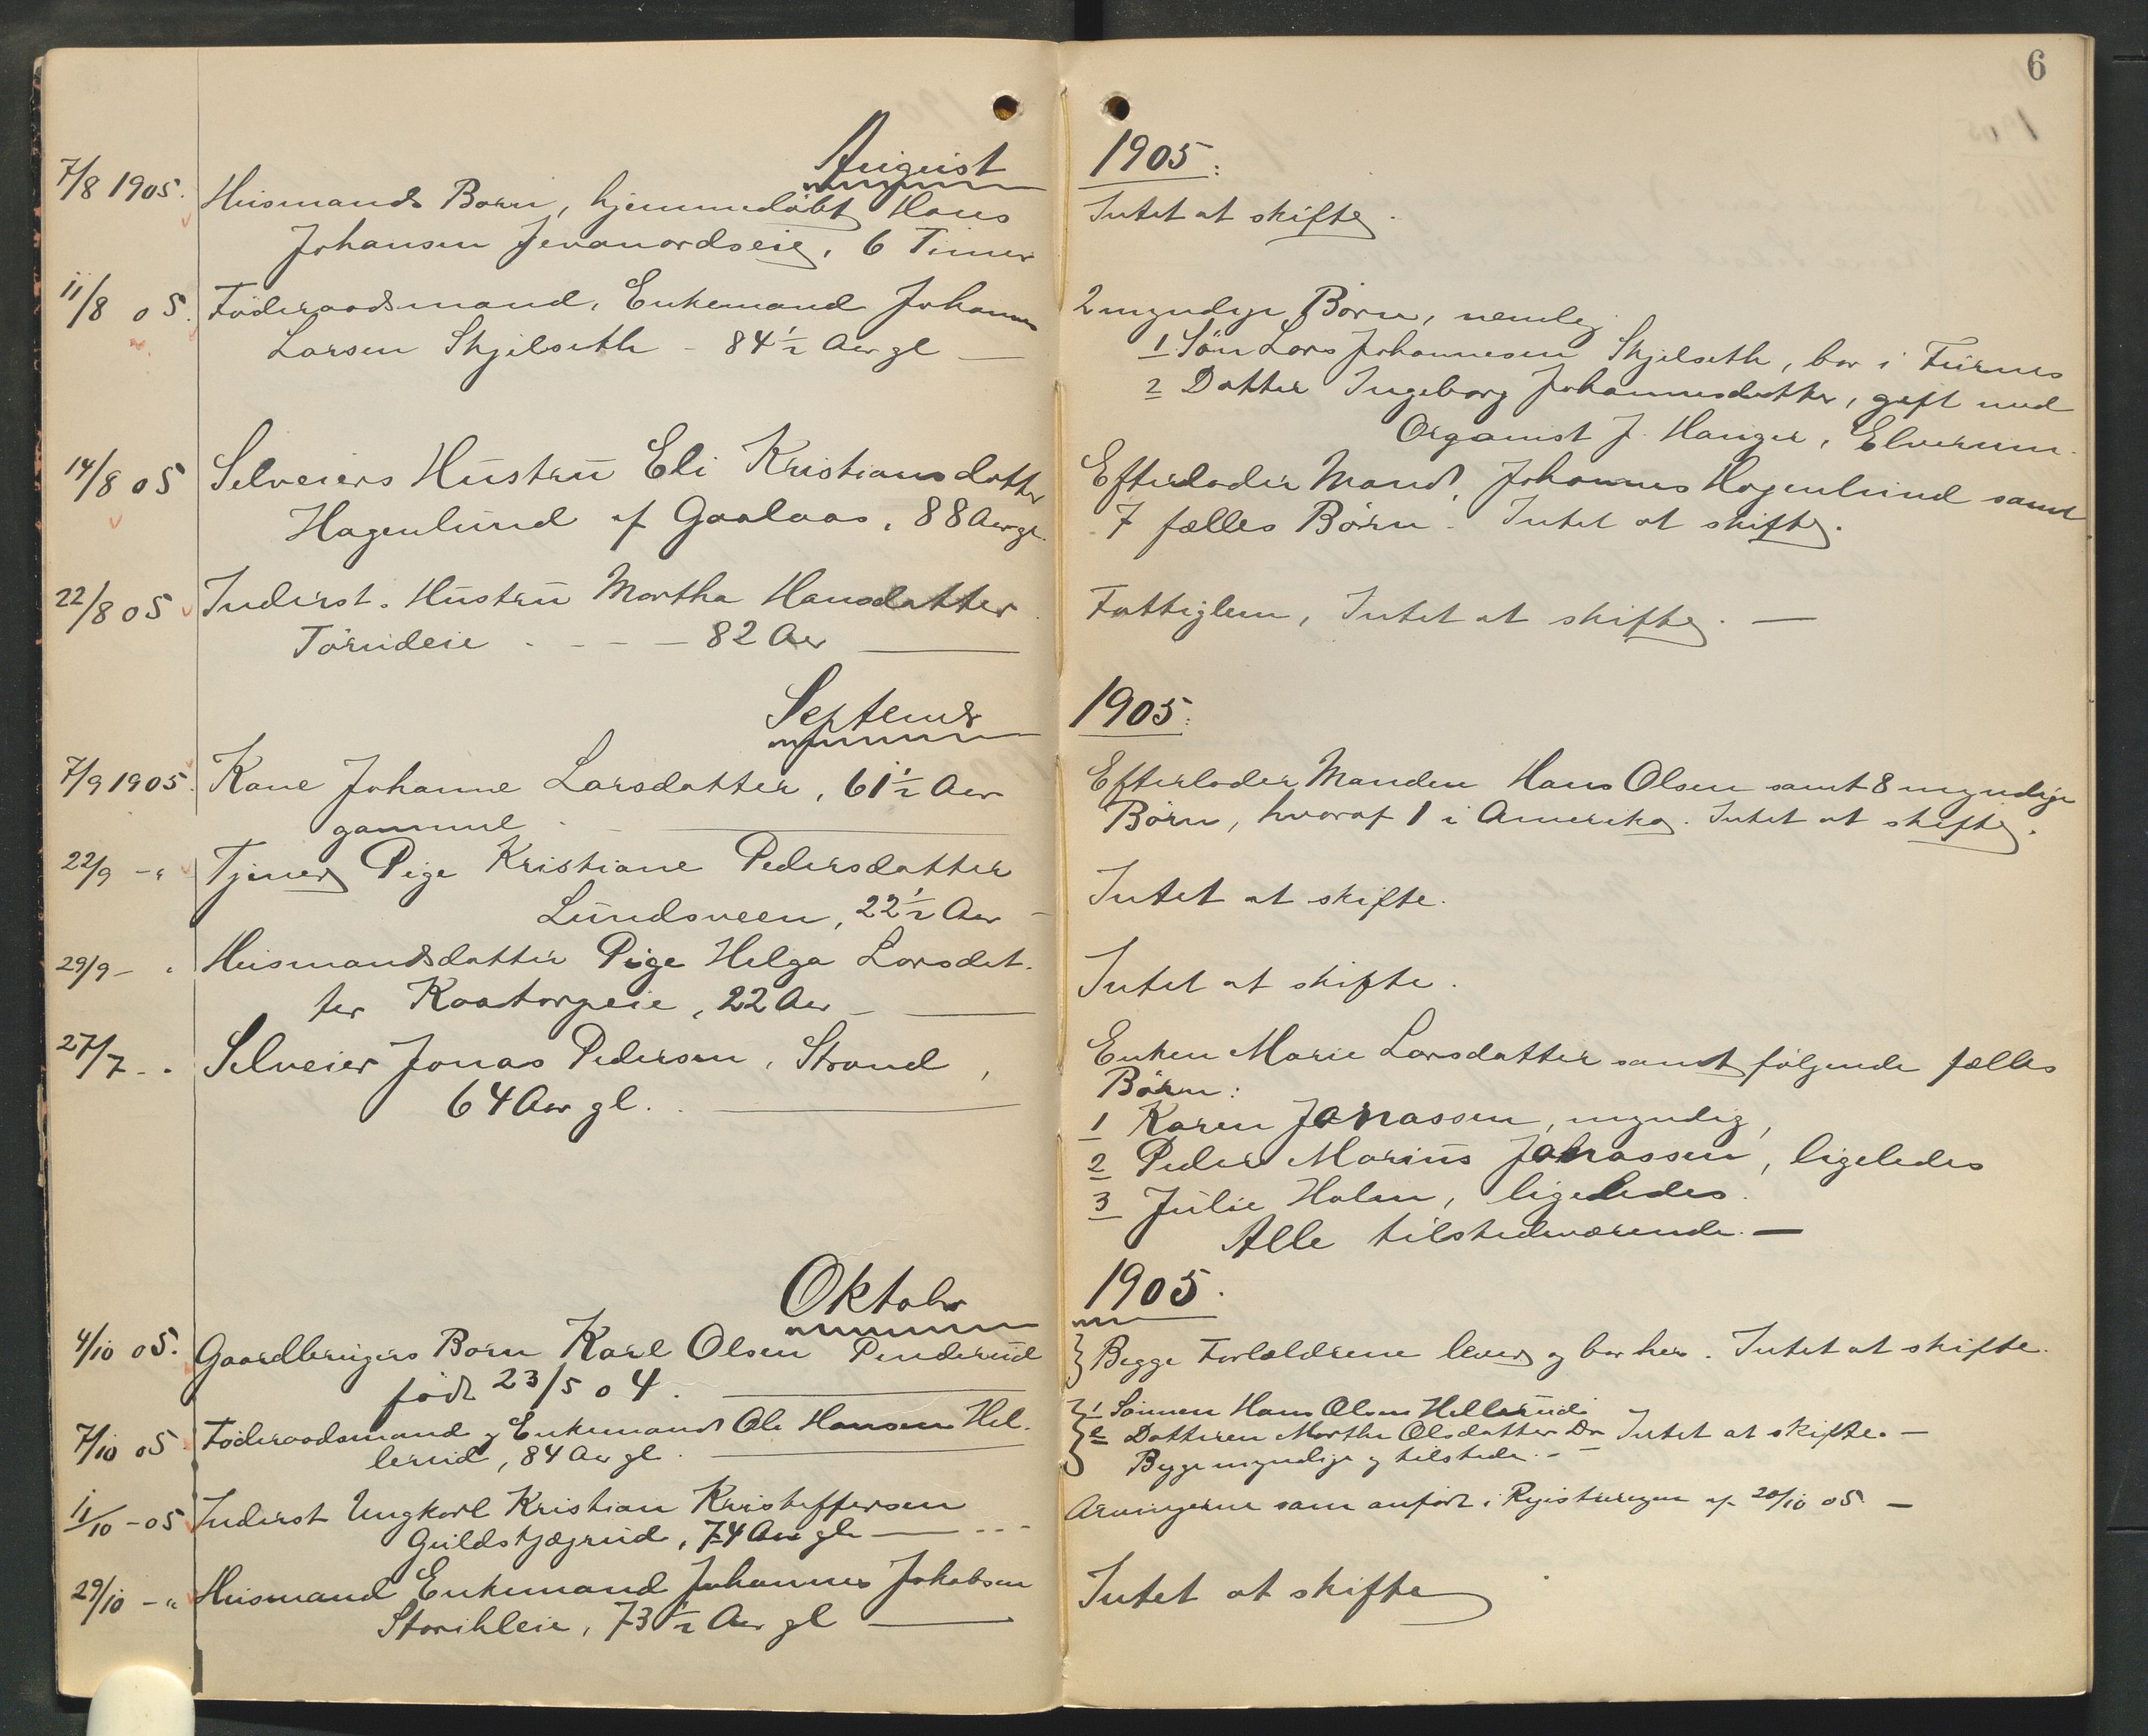 6
August 1905:
7/8 1905. Husmands Barn, hjemmedøbt Hans
Johansen Jevanordseie, 6 Timer
Intet at skifte.
11/8 05. Föderaadsmand, Enkemand Johannes
Larsen Skjelseth - 84 1/2 Aar gl —
2 myndige Børn, nemlig
1 Sön Lars Johannesen Skjelseth, bor i Furnes
2 Datter Ingeborg Johannesdatter, gift med
Organist J. Hauger, Elverum.
14/8 05 Selveiers Hustru Eli Kristiansdatter
Hagenlund af Gaalaas, 88 Aar gl.
Efterlader Mand, Johannes Hagenlund samt
7 fælles Börn. Intet at skifte.
22/8 05 Inderst. Hustru Martha Hansdatter
Törudeie - - - 82 Aar —
Fattiglem, Intet at skifte. —
Septembr 1905:
7/9 1905. Kone Johanne Larsdatter, 61 1/2 Aar
gammel. —
Efterlader Manden Hans Olsen samt 8 myndige
Börn, hvoraf 1 i Amerika. Intet at skifte.
22/9 -" Tjener Pige Kristiane Pedersdatter
Lundsveen, 22 1/2 Aar -
Intet at skifte.
29/9 - " Husmandsdatter Pige Helga Larsdat-
ter Kaatorpeie, 22 Aar —
Intet at skifte.
27/7 - " Selveier Jonas Pedersen, Strand,
64 Aar gl. —
Enken Marie Larsdatter samt følgende fælles
Börn:
1 Karen Jonassen, myndig,
2 Peder Marius Jonassen, ligeledes
3 Julie Holm, ligeledes.
Alle tilstedeværende. —
Oktobr 1905.
4/10 05. Gaardbrugers Barn Karl Olsen Penderud
född 23/5 04. —
Begge Forældrene lever og bor her. Intet at skifte.
7/10 05 Föderaadsmand og Enkemand Ole Hansen Hel-
lerud, 84 Aar gl. —
1 Sönnen Hans Olsen Hellerud
2 Datteren Marthe Olsdatter Do Intet at skifte. —
Begge myndige og tilstede. -
11/10 - 05 Inderst Ungkarl Kristian Kristoffersen
Guldskjægrud, 74 Aar gl — - - -
Arvingerne som anført i Registeringen af 20/10 05. —
29/10 - " Husmand Enkemand Johannes Jakobsen
Storihleie, 73 1/2 Aar gl —
Intet at skifte